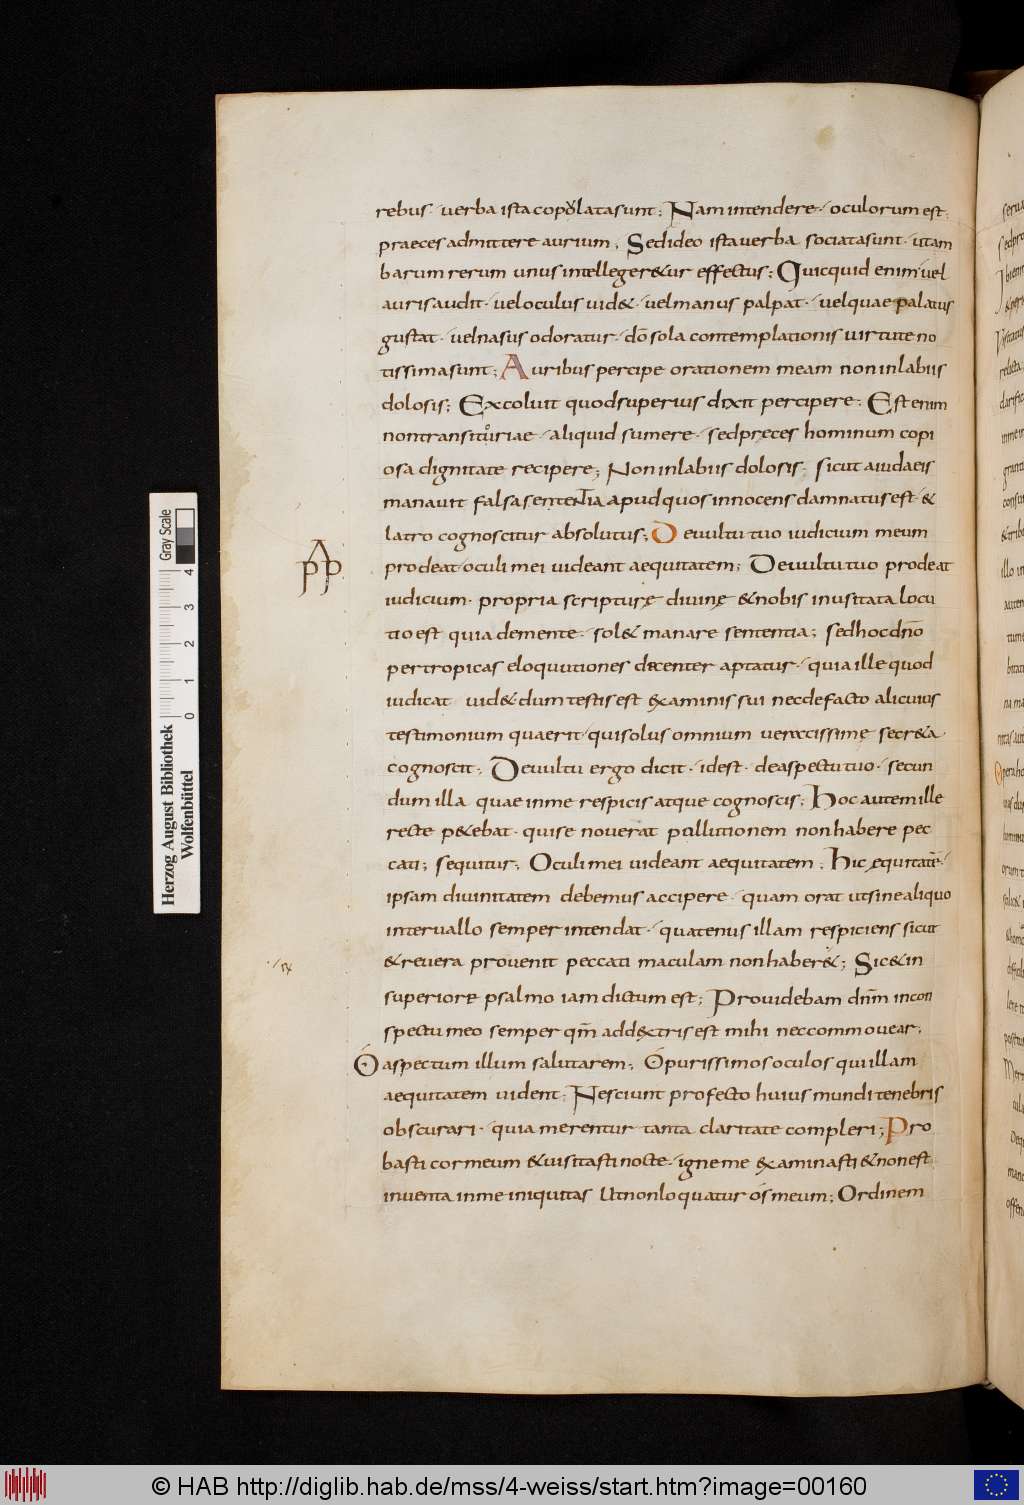 rebus· uerba ista copolata sunt; Nam intendere· oculorum est·
praeces admittere aurium; Sed ideo ista uerba sociata sunt· ut am
barum rerum unus intelleger&ur effectus; Quicquid enim uel
auris audit· uel oculus uid&· uel manus palpat· uel quae palatus
gustat· uel nasus odoratur· dō sola contemplationis uirtute no
tissima sunt; Auribus percipe orationem meam non in labiis
dolosis; Excoluit quod superius dixit percipere· Est enim
non transitoriae· aliquid sumere· sed preces hominum copi
osa dignitate recipere; Non in labiis dolosis· sicut a iudaeis
manauit falsa sententia apud quos innocens damnatus est· &
latro cognoscitur absolutus; De uultu tuo iudicium meum
prodeat· oculi mei uideant aequitatem; De uultu tuo prodeat
iudicium· propria scripturę diuinę & nobis inusitata locu
tio est quia de mente· sol& manare sententia; sed hoc dn̄o
per tropicas eloqutiones decenter aptatur· quia ille quod
iudicat uid& dum testis est examinis sui nec de facto alicuius
testimonium quaerit· qui solus omnium ueracissimę secr&a·
cognoscit; De uultu ergo dicit· id est· de aspectu tuo· secun
dum illa quae in me respicis atque cognoscis; Hoc autem ille
recte p&ebat· qui se nouerat pollutionem non habere pec
cati; sequitur; Oculi mei uideant aequitatem; Hic equitatē·
ipsam diuinitatem debemus accipere· quam orat ut sine aliquo
interuallo semper intendat· quatenus illam respiciens sicut
& reuera prouenit peccati maculam non haber&; Sic & in
superiore psalmo iam dictum est; Prouidebam dn̄m in con
spectu meo semper qm̄ a dextris est mihi nec commouear;
O aspectum illum salutarem; O purissimos oculos qui illam
aequitatem uident; Nesciunt profecto huius mundi tenebris
obscurari· quia merentur tanta claritate compleri; Pro
basti cor meum & uisitasti nocte· igne me examinasti & non est
inuenta in me iniquitas Ut non loquatur os meum; Ordinem
Herzog August Bibliothek
Wolfenbüttel
0 1 2 3 4
Gray Scale
© HAB http://diglib.hab.de/mss/4-weiss/start.htm?image=00160